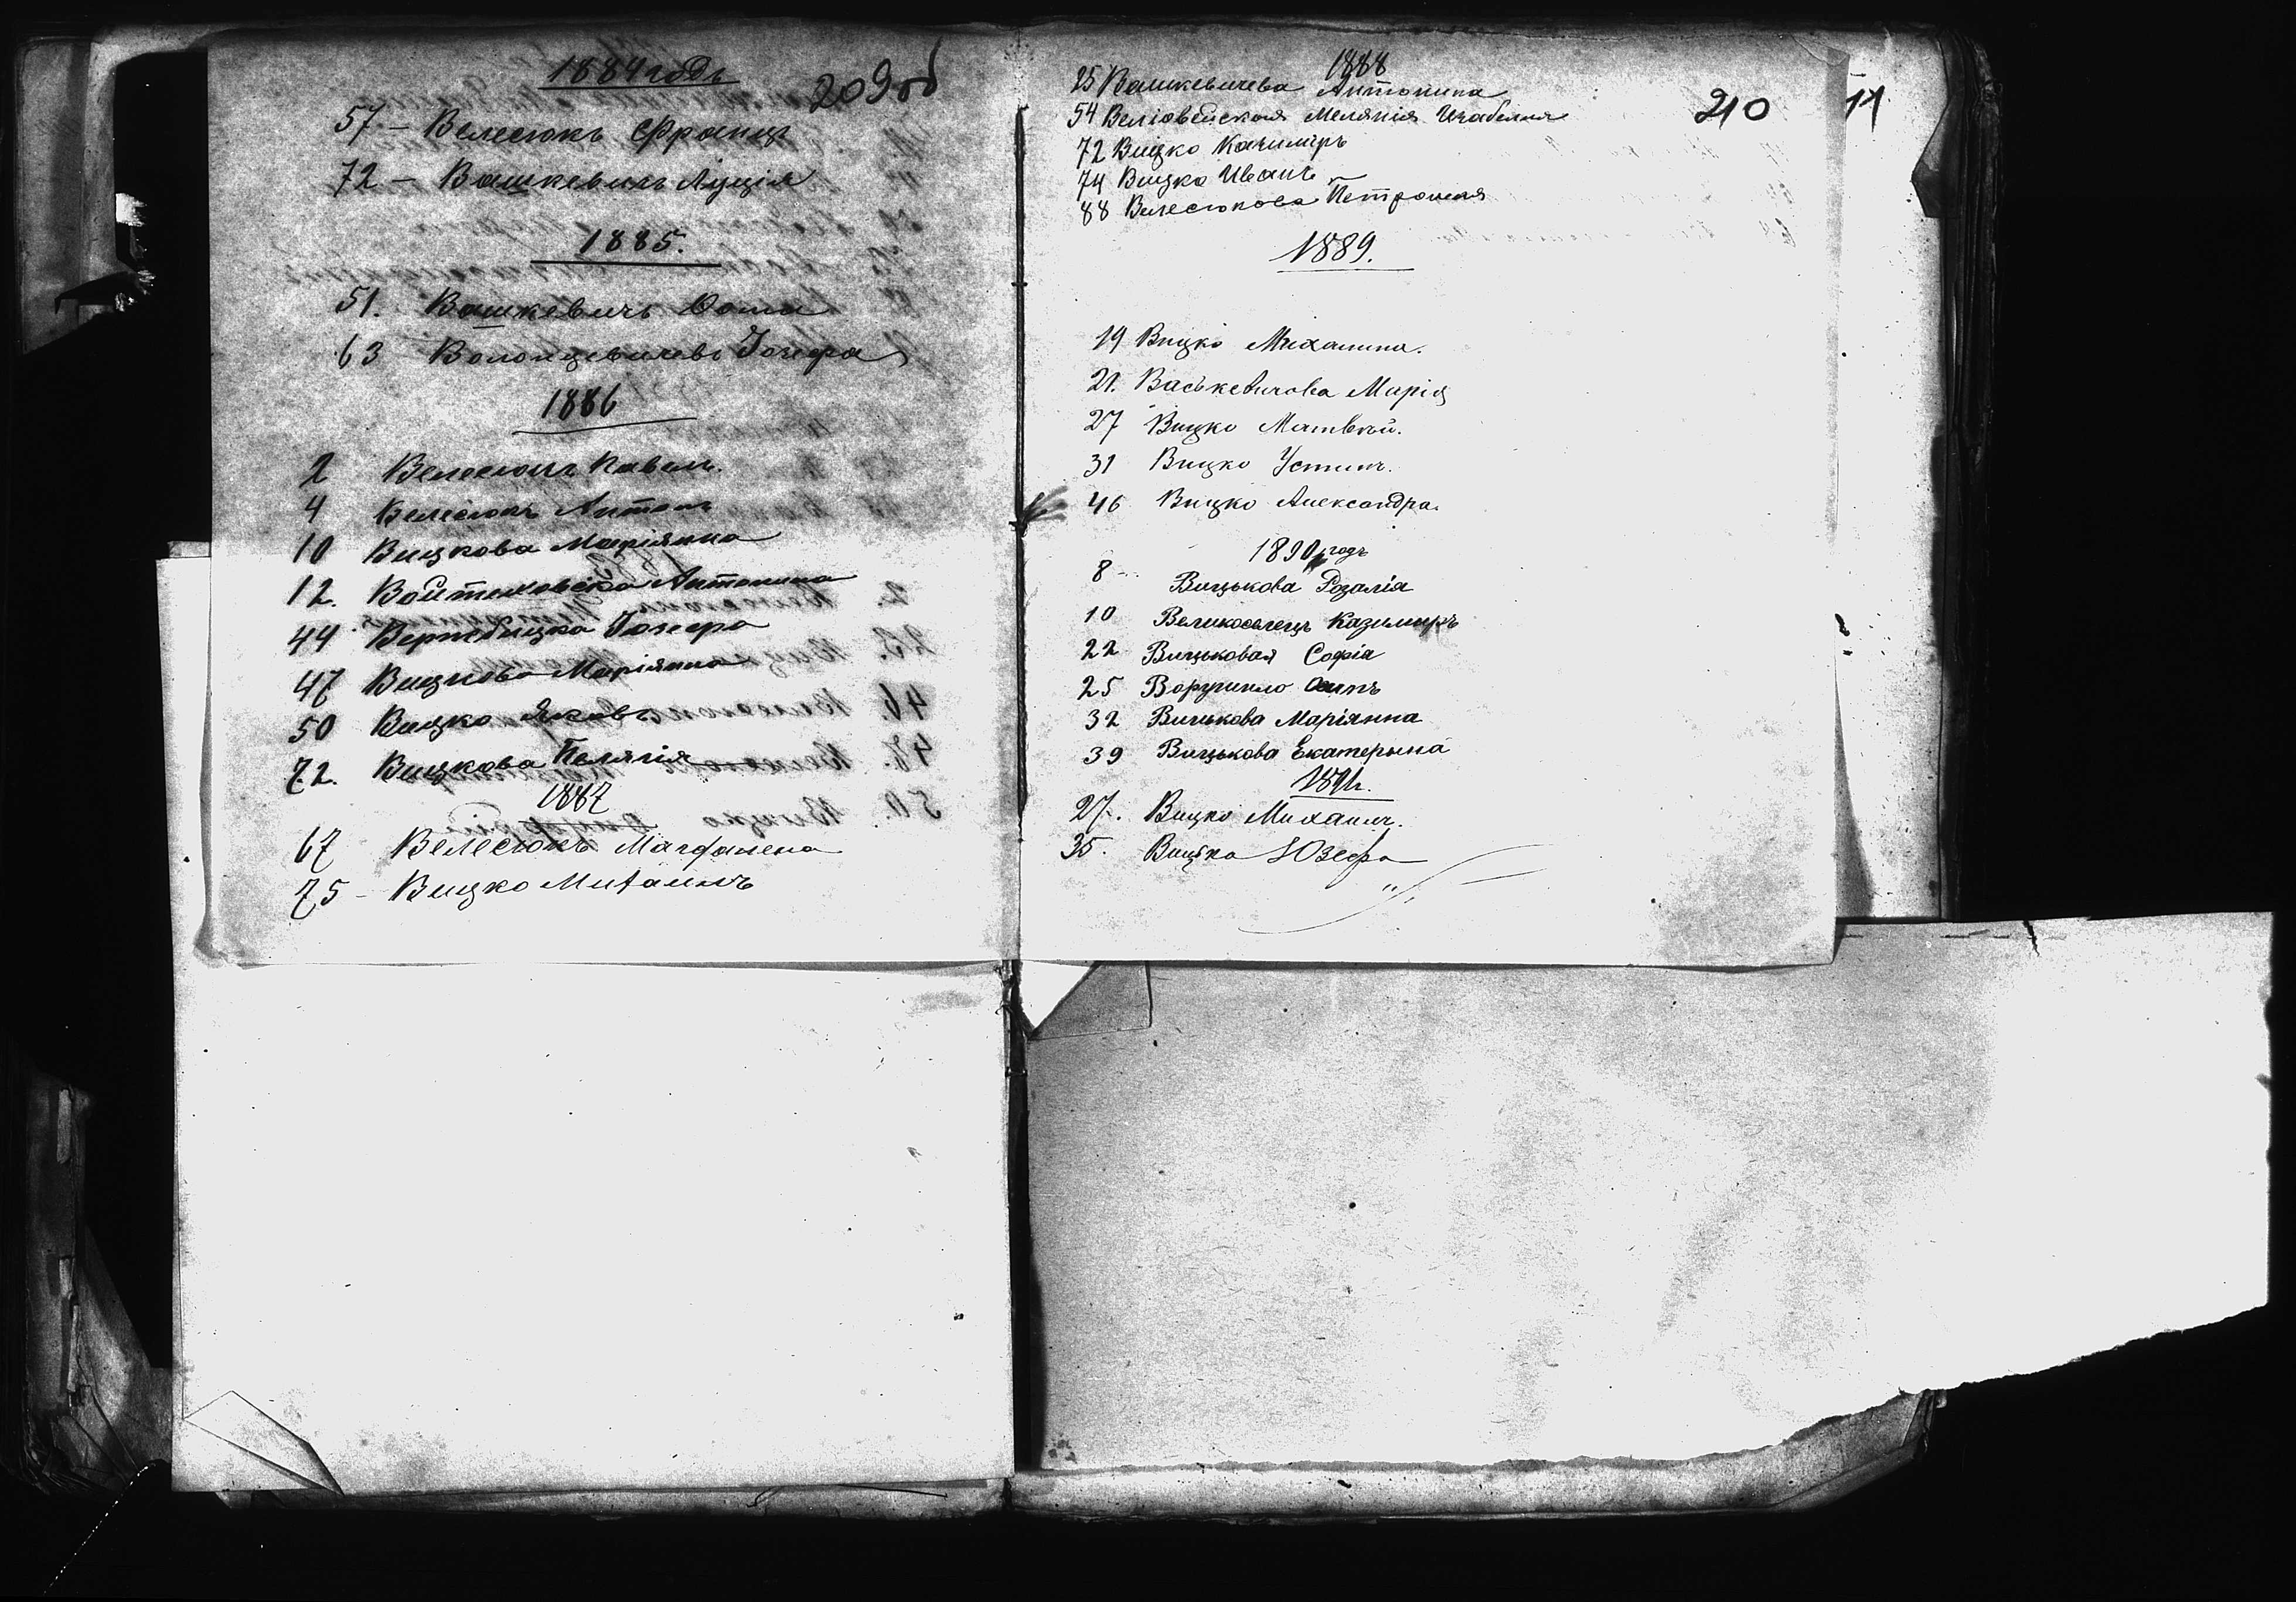 1884 годъ
209 об
57 – Велесюкъ Францъ
72 – Вашкевичъ Луція
1885.
51. Вашкевичъ Ѳома
63 Волонцевичева Іозефа
1886
2 Велесюкъ Павелъ.
4 Велесюкъ Антонъ
10 Вицкова Маріянна
12. Войтеховска Антонина
44 Вержбицка Іозефа
47 Вицкова Маріянна
50 Вицко Яковъ
72. Вицкова Пелягія
1887
67 Велесюкъ Магдалена
75 – Вицко Михаилъ
1888
210
11
25 Вашкевичева Антонина
54 Меланія Изабелля
72 Вицко Казиміръ
74 Вицко Иванъ
88 Велесюкова Петронеля
1889.
19 Вицко Михалина.
21. Васькевичова Марія
27 Вицко Матвѣй.
31 Вицко Устинъ.
46 Вицко Александра.
1890 годъ
8 – Вицькова Розалія
10 Великоселецъ Казимиръ
22 Вицьковая Софія
25 Осипъ
32 Вицькова Маріянна
39 Вицькова Екатерына
1891 г.
27. Вицко Михаилъ.
35. Вицка Юзефа